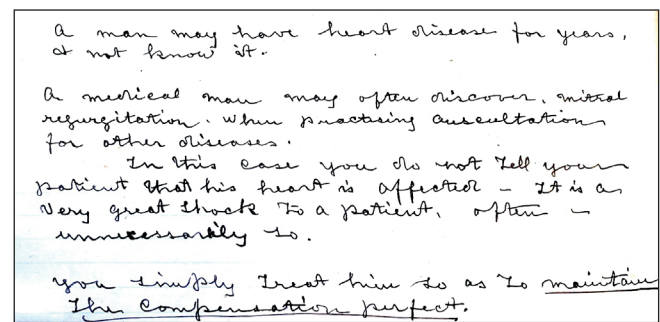 A man may have heart disease for years,
& not know it.
A medical man may often discover, mitral
regurgitation. When practising auscultation
for other diseases.
In this case you do not tell your
patient that his heart is affected - It is a
very great shock to a patient, often -
unnecessarily so.
you simply treat him so as to maintain
the compensation perfect.